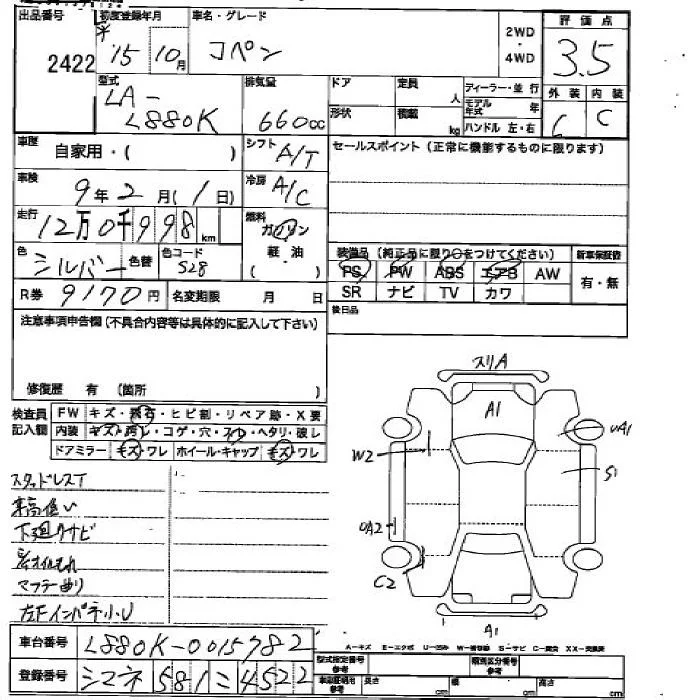 出品番号 2422
初度登録年月 '15 10月
車名・グレード コペン
2WD・4WD
評価点 3.5
型式 LA-L880K
排気量 660cc
ドア
定員 人
ディーラー・並行
モデル年式 年
形状
積載 kg
ハンドル 左・右
外装 C
内装 C
車歴 自家用・( )
シフト A/T
セールスポイント(正常に機能するものに限ります)
車検 9年2月(1日)
冷房 A/C
走行 12万0千998km
燃料 ガソリン・軽油( )
色 シルバー 色替
色コード S28
装備品(純正品に限り○をつけてください)
新車保証書 有・無
PS PW ABS エアB AW
SR ナビ TV カワ
R券 9170円
名変期限 月 日
後日品
注意事項申告欄(不具合内容等は具体的に記入して下さい)
修復歴 有 (箇所 )
検査員記入欄
FW キズ・飛石・ヒビ割・リペア跡・X要
内装 キズ・汚レ・コゲ・穴・スレ・ヘタリ・破レ
ドアミラー キズ ワレ ホイール・キャップ キズ ワレ
スタッドレスT
車高低い
下廻りサビ
マフラー曲り
スリA
A1
UA1
W2
S1
UA2
C2
A1
車台番号 L880K-0015782
登録番号 シマネ 581 ニ 4522
A-キズ E-エクボ U-凹み W-補修跡 S-サビ C-腐食 XX-交換済
型式指定番号 参考
類別区分番号 参考
cm 幅 cm 高さ cm